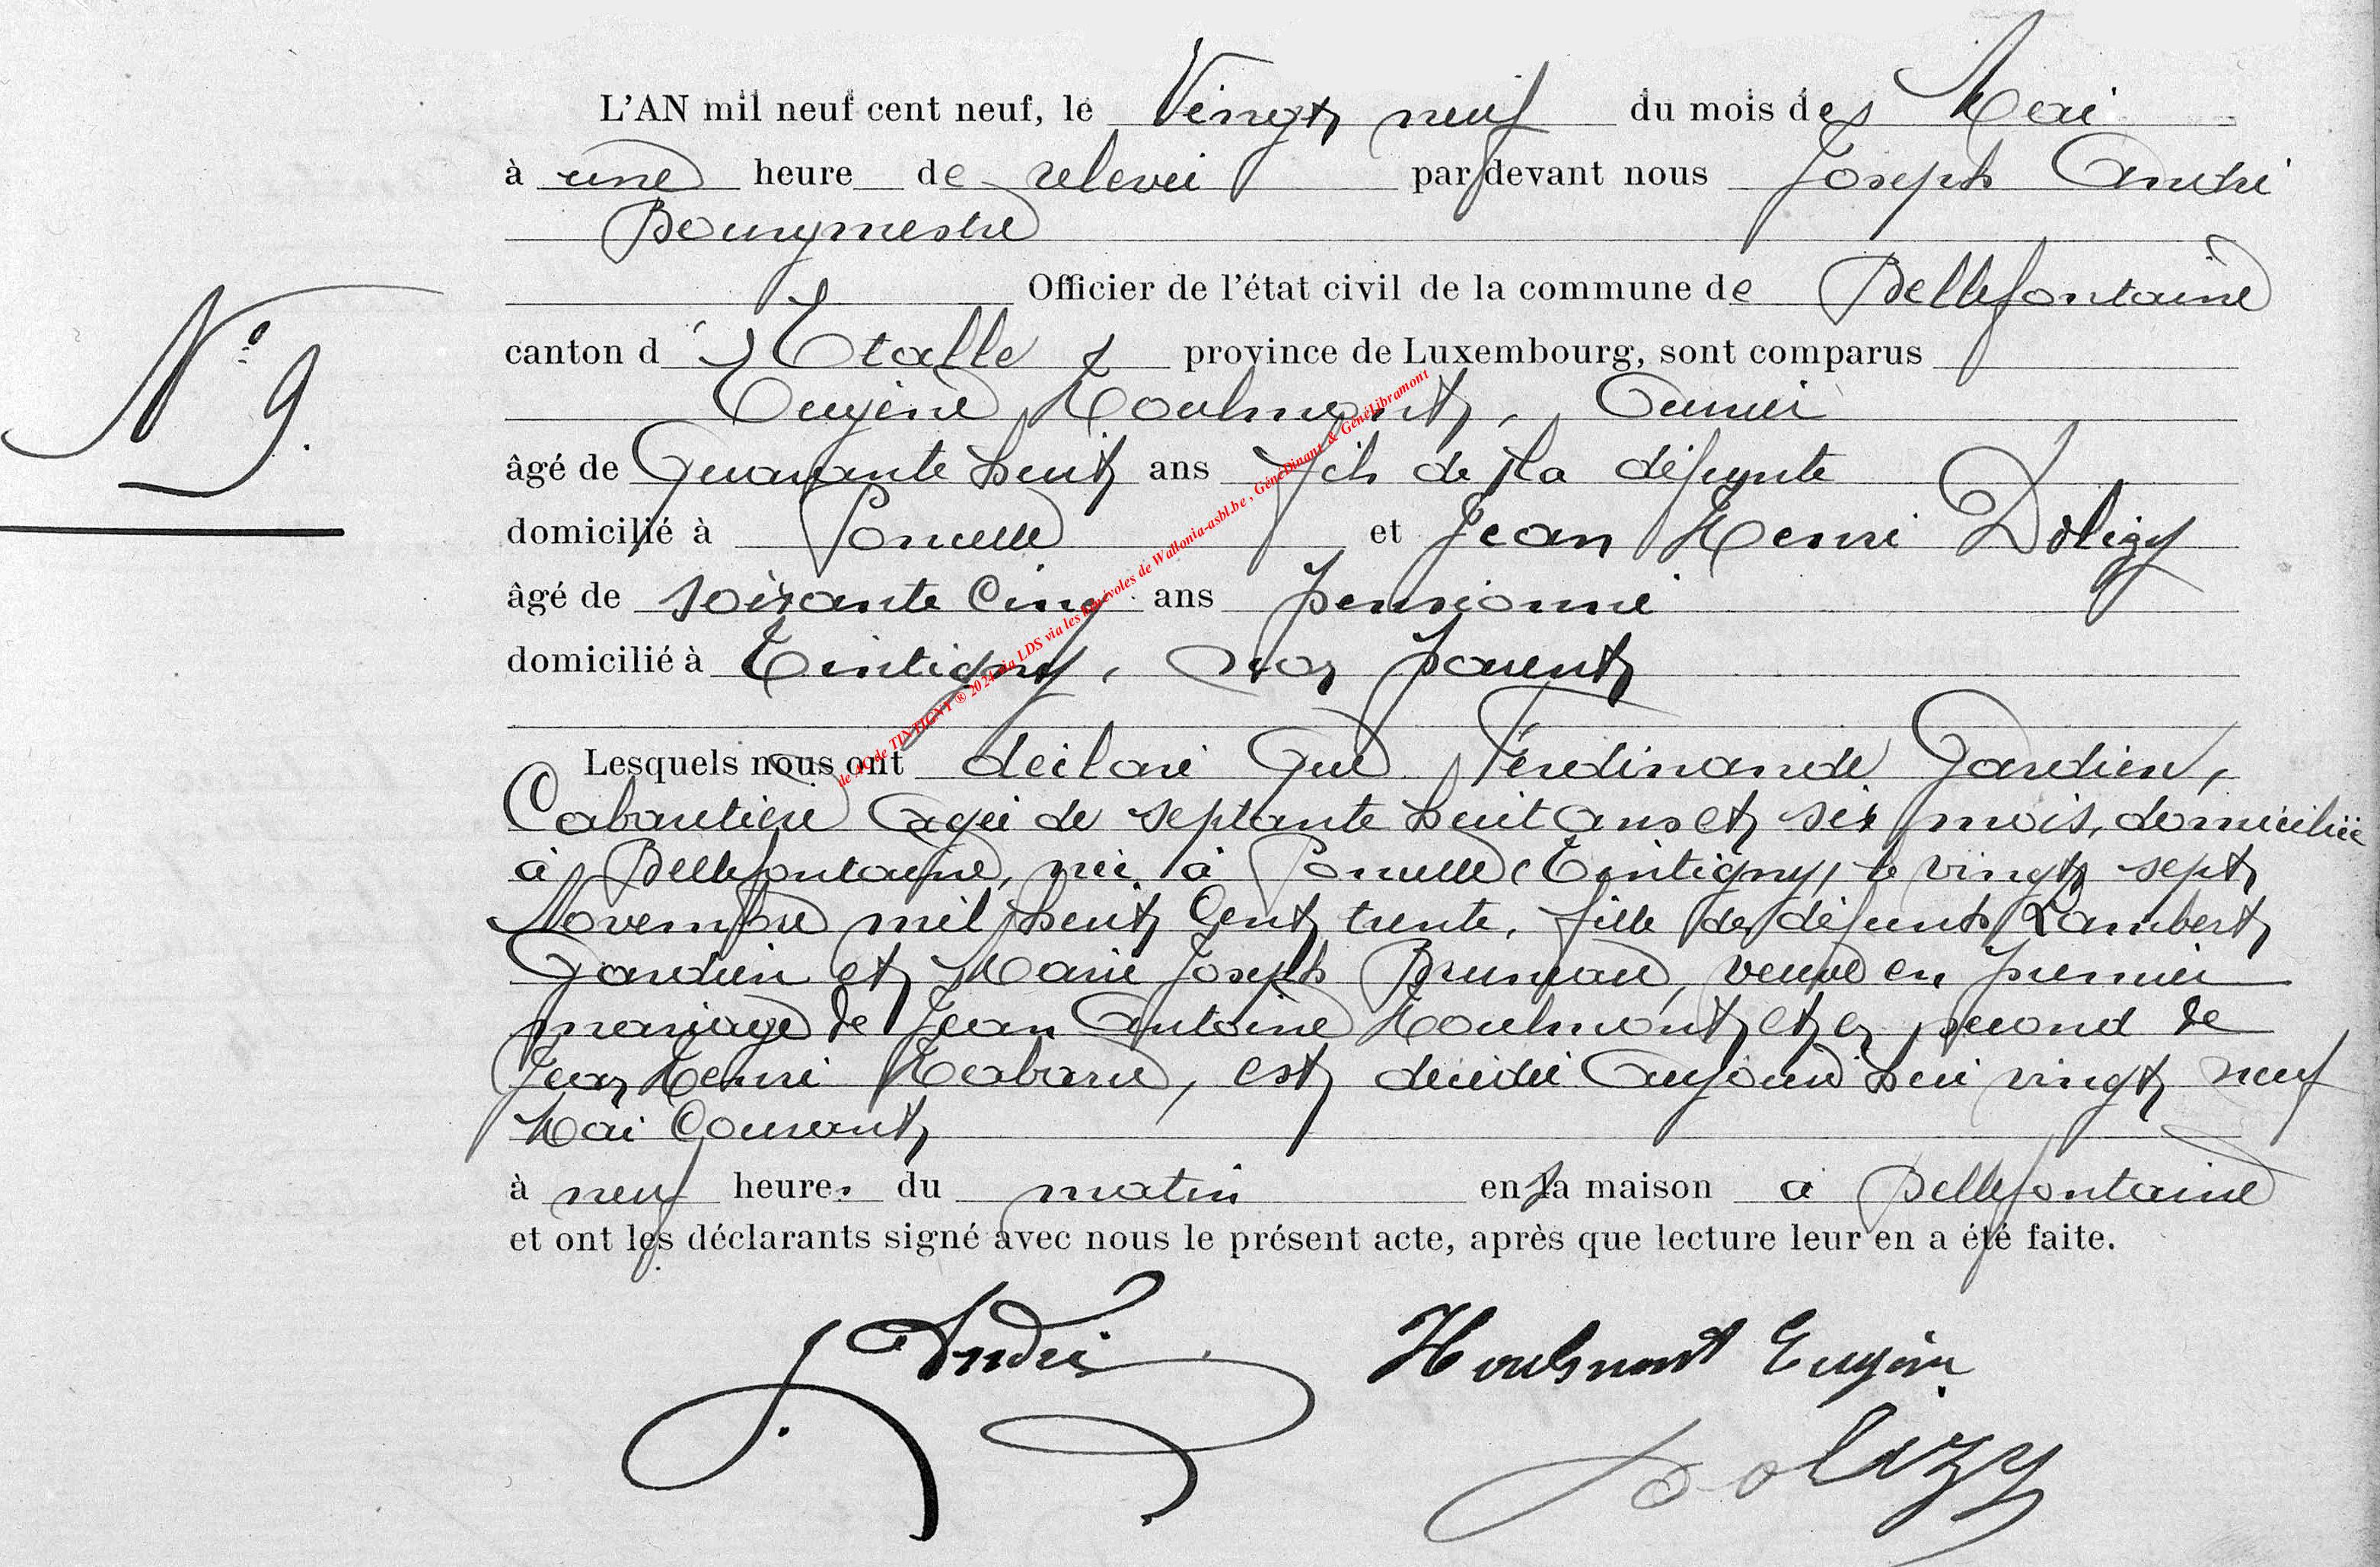 L'AN mil neuf cent neuf, le Vingt neuf du mois de Mai
à une heure de relevée par devant nous Joseph André
Bourgmestre
Officier de l'état civil de la commune de Bellefontaine
N° 9.
canton d'Etalle province de Luxembourg, sont comparus
Eugène Houlmont, Ouvrier
âgé de Quarante huit ans fils de la défunte
domicilié à Poncelle et Jean Henri Dolizy
âgé de soixante Cinq ans pensionné
domicilié à Tintigny, non parent
Lesquels nous ont déclaré Que Ferdinande Gardien,
Cabaretière agée de septante huit ans et six mois, domiciliée
à Bellefontaine, née à Poncelle (Tintigny) le vingt sept
Novembre mil huit Cent trente, fille des défunts Lambert
Gardien et Marie Joseph Bruneau, veuve en premier
mariage de Jean Antoine Houlmont et en second de
Jean Henri Habaru, est décédée Aujourd'hui vingt neuf
Mai Courant
à neuf heures du matin en sa maison à Bellefontaine
et ont les déclarants signé avec nous le présent acte, après que lecture leur en a été faite.
J. André Houlmont Eugène
Dolizy
de AC de TINTIGNY ® 2024 via LDS via les bénévoles de Wallonia-asbl.be, GénéDinant & GénéLibramont